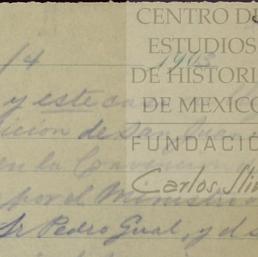 CENTRO D
ESTUDIOS
DE HISTORI
DE MEXICO
FUNDACIÓ
Carlos Sli
/4 1903
y este
icion de San Juan
en la Convencion
por el Ministro
Sr Pedro Gual, y d